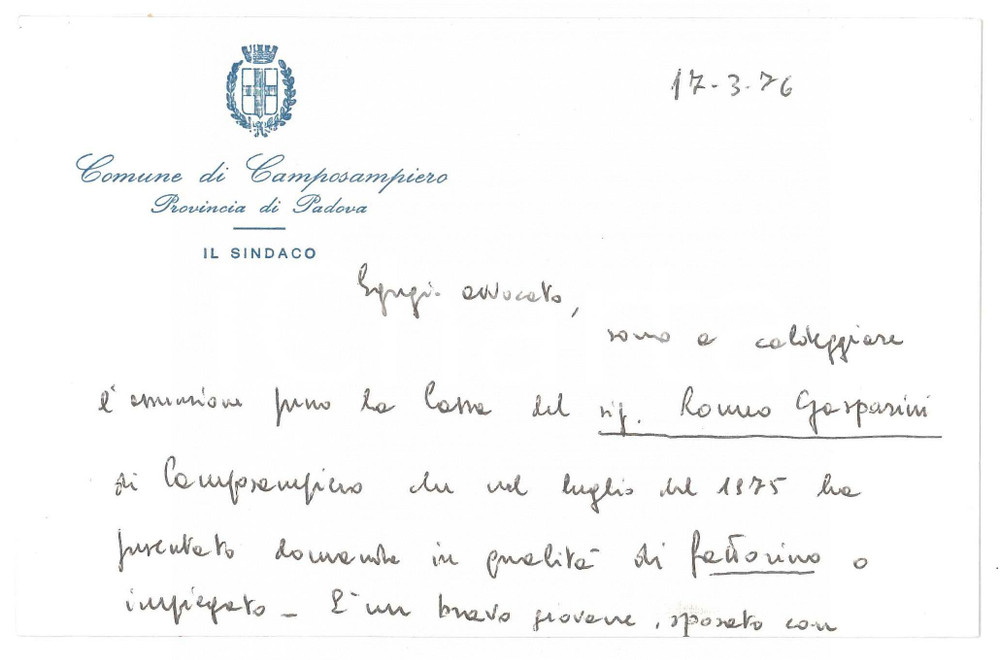 17-3-76
Comune di Camposampiero
Provincia di Padova
IL SINDACO
Egregio avvocato,
sono a caldeggiare
l'assunzione presso la Cassa del sig. Romeo Gasparini
di Camposampiero che nel luglio del 1975 ha
presentato domanda in qualità di fattorino o
impiegato - E' un bravo giovane, sposato con